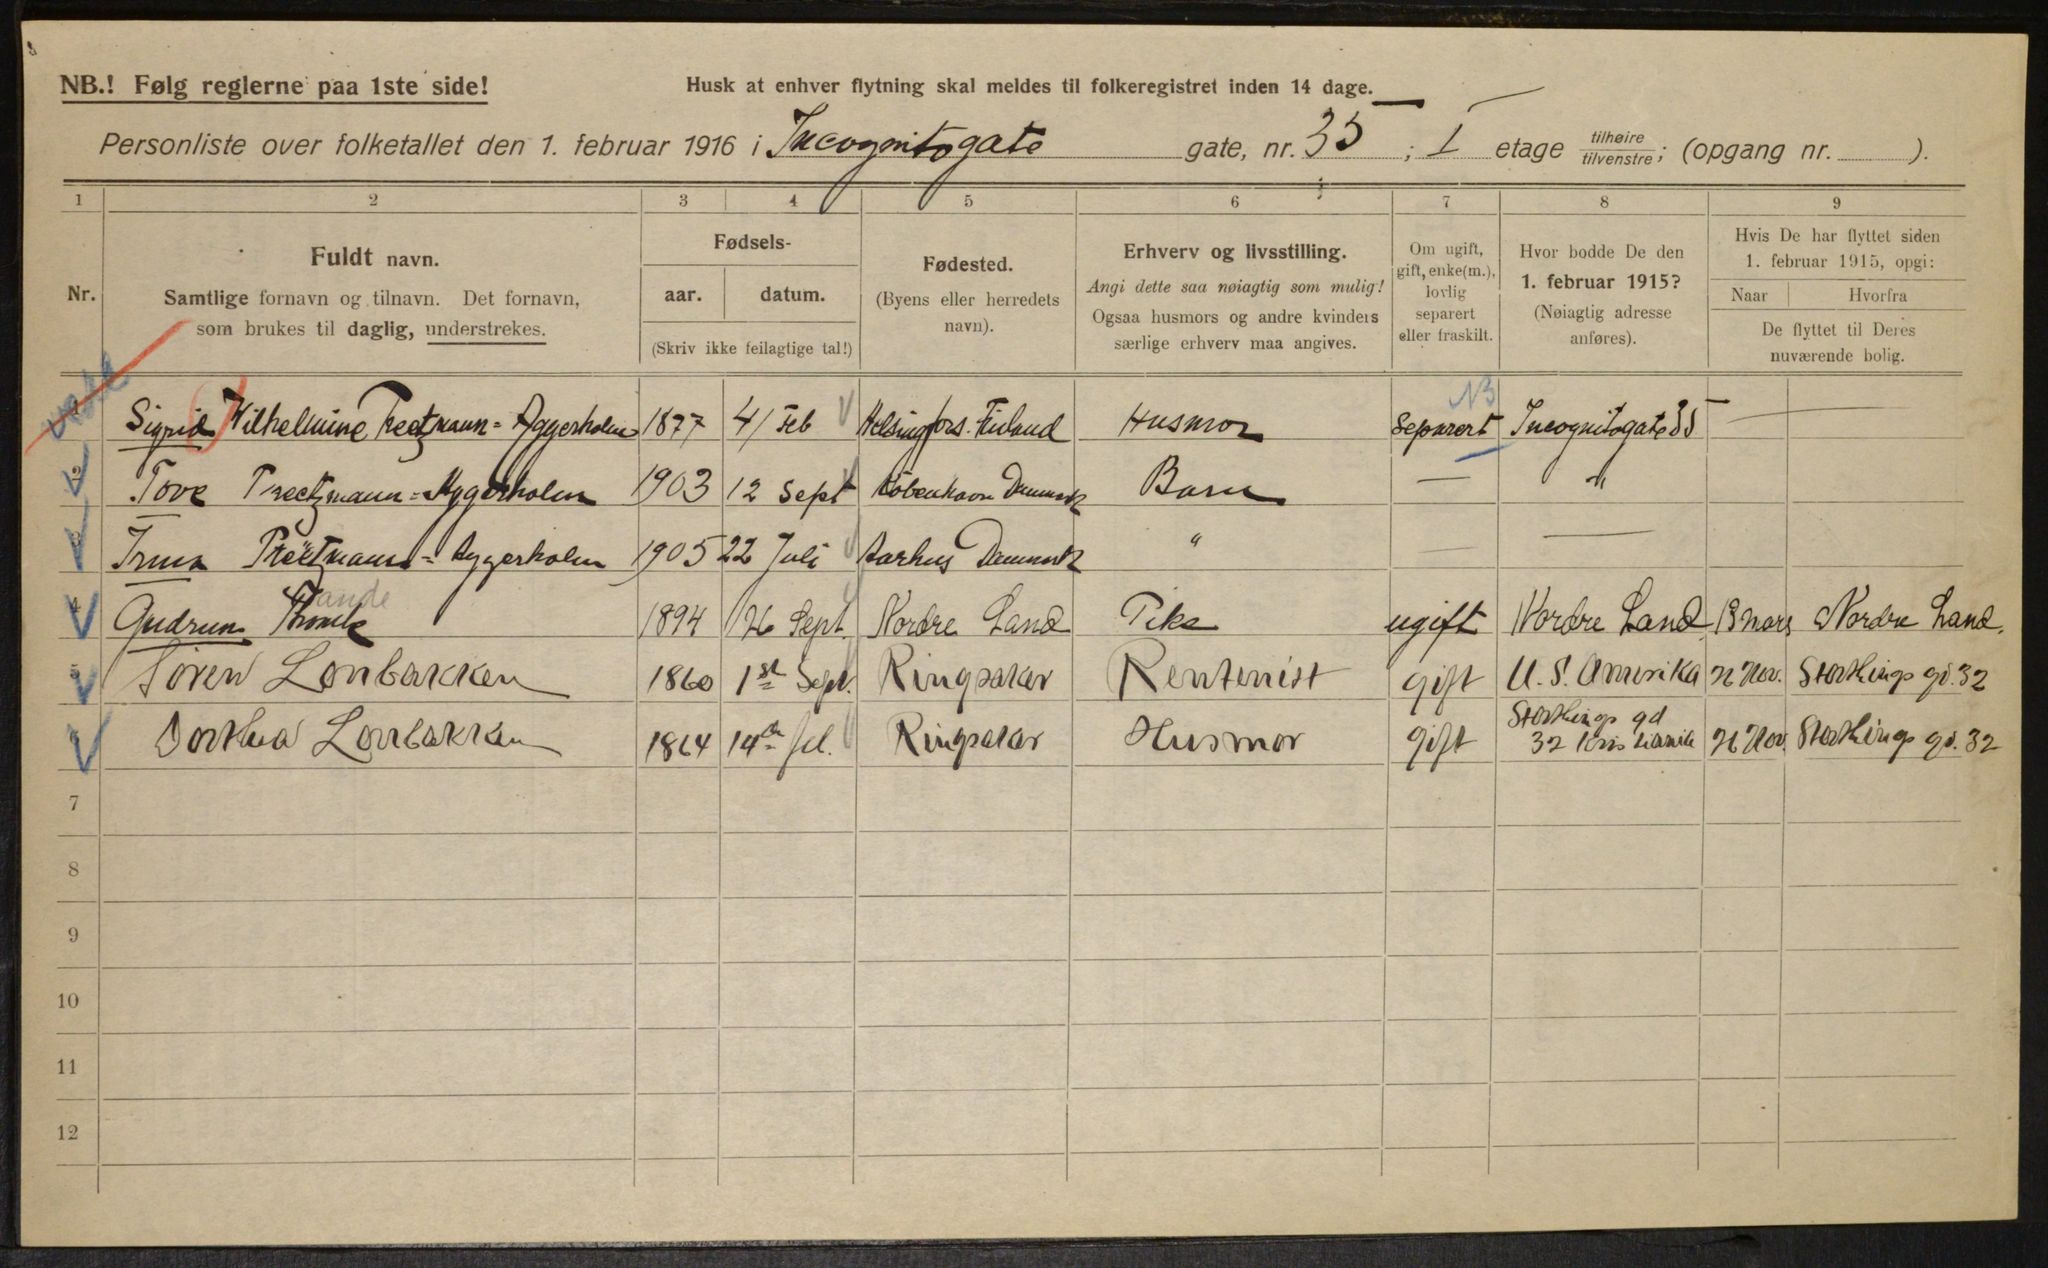 NB.! Følg reglerne paa 1ste side!
Husk at enhver flytning skal meldes til folkeregistret inden 14 dage.
Personliste over folketallet den 1. februar 1916 i Incognitogate gate, nr. 35 ; I etage tilhøire tilvenstre; (opgang nr. ).
1 2 3 4 5 6 7 8 9
Nr.
Fuldt navn.
Samtlige fornavn og tilnavn. Det fornavn,
som brukes til daglig, understrekes.
Fødsels-
aar. datum.
(Skriv ikke feilagtige tal!)
Fødested.
(Byens eller herredets
navn).
Erhverv og livsstilling.
Angi dette saa nøiagtig som mulig!
Ogsaa husmors og andre kvinders
særlige erhverv maa angives.
Om ugift,
gift, enke(m.),
lovlig
separert
eller fraskilt.
Hvor bodde De den
1. februar 1915?
(Nøiagtig adresse
anføres).
Hvis De har flyttet siden
1. februar 1915, opgi:
Naar Hvorfra
De flyttet til Deres
nuværende bolig.
NB
1 Sigrid Wilhelmine Treetzmann=Aggerholm 1877 4/ Feb Helsingfors. Finland Husmor Separert Incognitogate 35 —
2 Tove Treetzmann=Aggerholm 1903 12 Sept København Danmark Barn — "
3 Irma Treetzmann=Aggerholm 1905 22 Juli Aarhus Danmark " — —
4 Gudrun 1894 26 Sept. Nordre Land Pike ugift Nordre Land Nordre Land.
5 Soren Lonbakken 1860 1st Sept. Ringsaker Rentenist gift U. S. Amerika 26 Nov. Storthings gd. 32
6 Dorthea Lonbakken 1864 14th Ringsaker Husmor gift Storthings gd 32 Kristiania 26 Nov. Storthings gd. 32
7
8
9
10
11
12